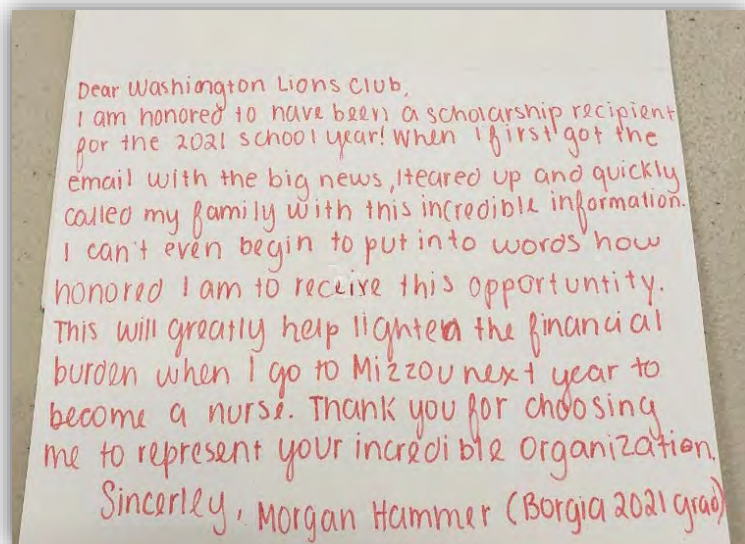 Dear Washington Lions Club,
I am honored to have been a scholarship recipient
for the 2021 school year! When I first got the
email with the big news, I teared up and quickly
called my family with this incredible information.
I can't even begin to put into words how
honored I am to receive this opportuntity.
This will greatly help lighten the financial
burden when I go to Mizzou next year to
become a nurse. Thank you for choosing
me to represent your incredible organization.
Sincerley, Morgan Hammer (Borgia 2021 grad)